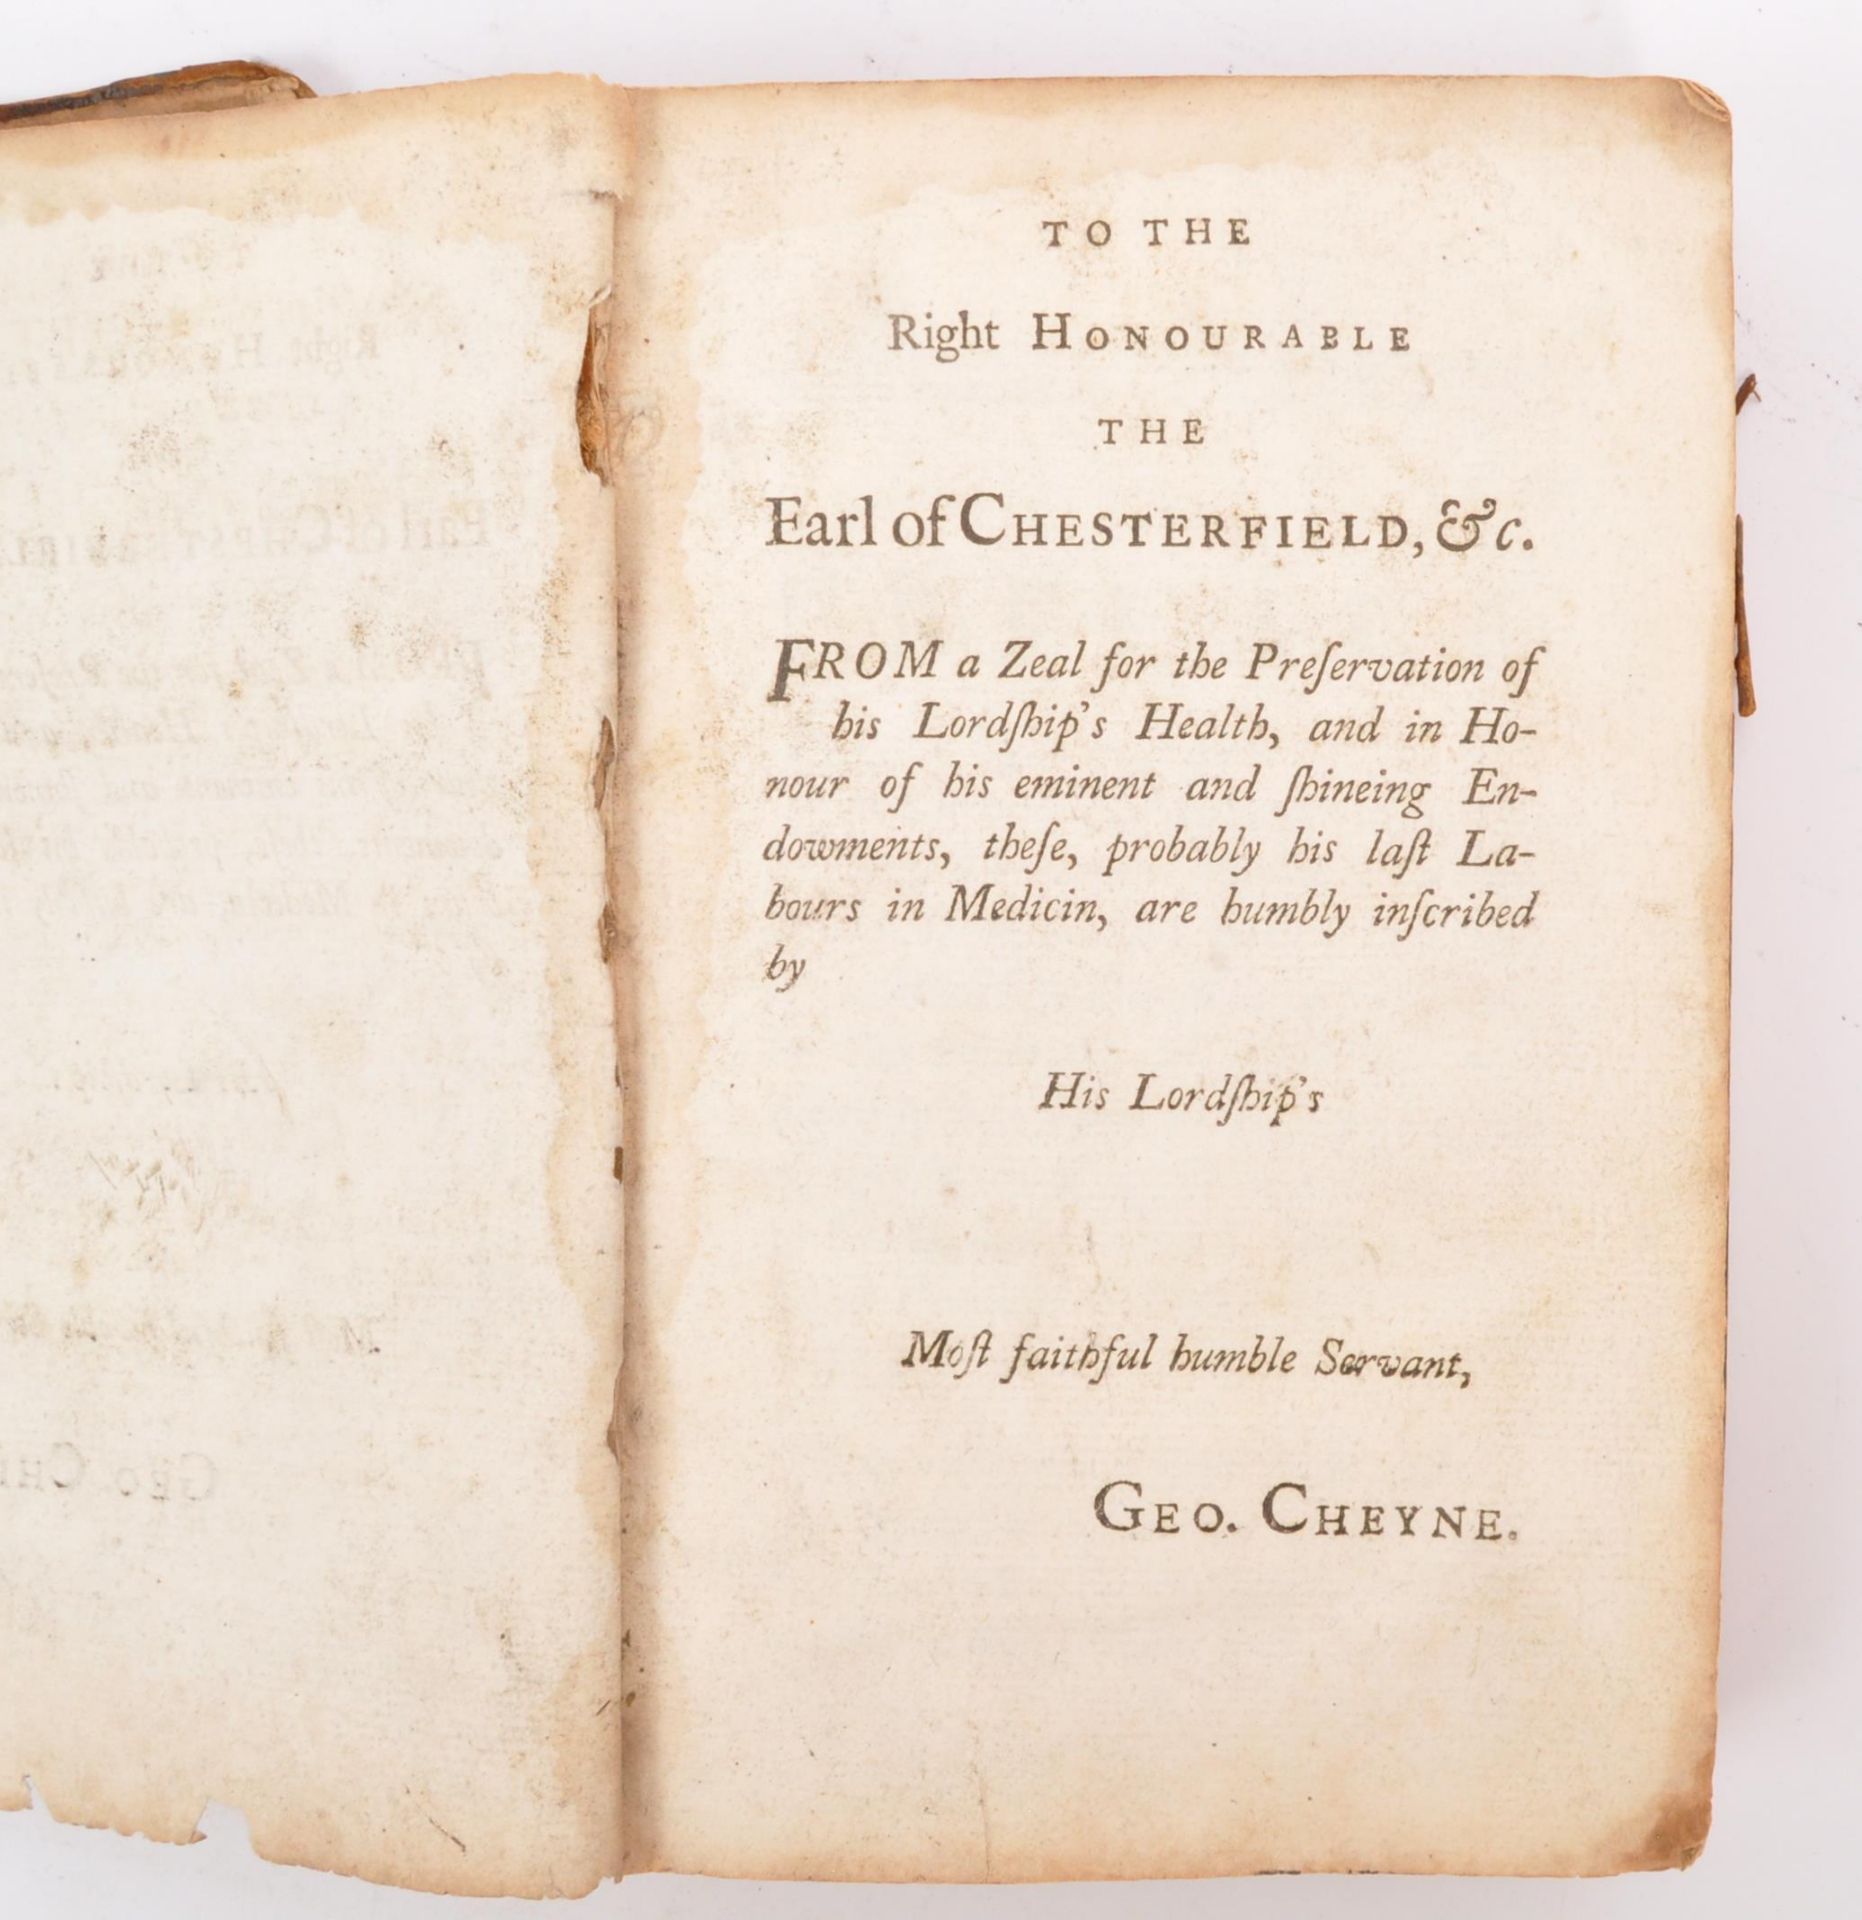 TO THE
Right HONOURABLE
THE
Earl of CHESTERFIELD, &c.
FROM a Zeal for the Preſervation of
his Lordſhip's Health, and in Ho-
nour of his eminent and ſhineing En-
dowments, theſe, probably his laſt La-
bours in Medicin, are humbly inſcribed
by
His Lordſhip's
Moſt faithful humble Servant,
GEO. CHEYNE.